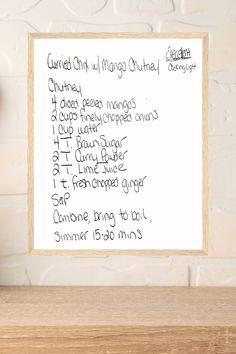 Curried Chix w/ Mango Chutney
Cooking Light
Chutney
4 diced peeled mangos
2 cups finely chopped onions
1 cup water
4 T. Brown Sugar
2 T. Curry Powder
2 T. Lime Juice
1 t. fresh chopped ginger
S&P
Combine, bring to boil,
simmer 15-20 mins